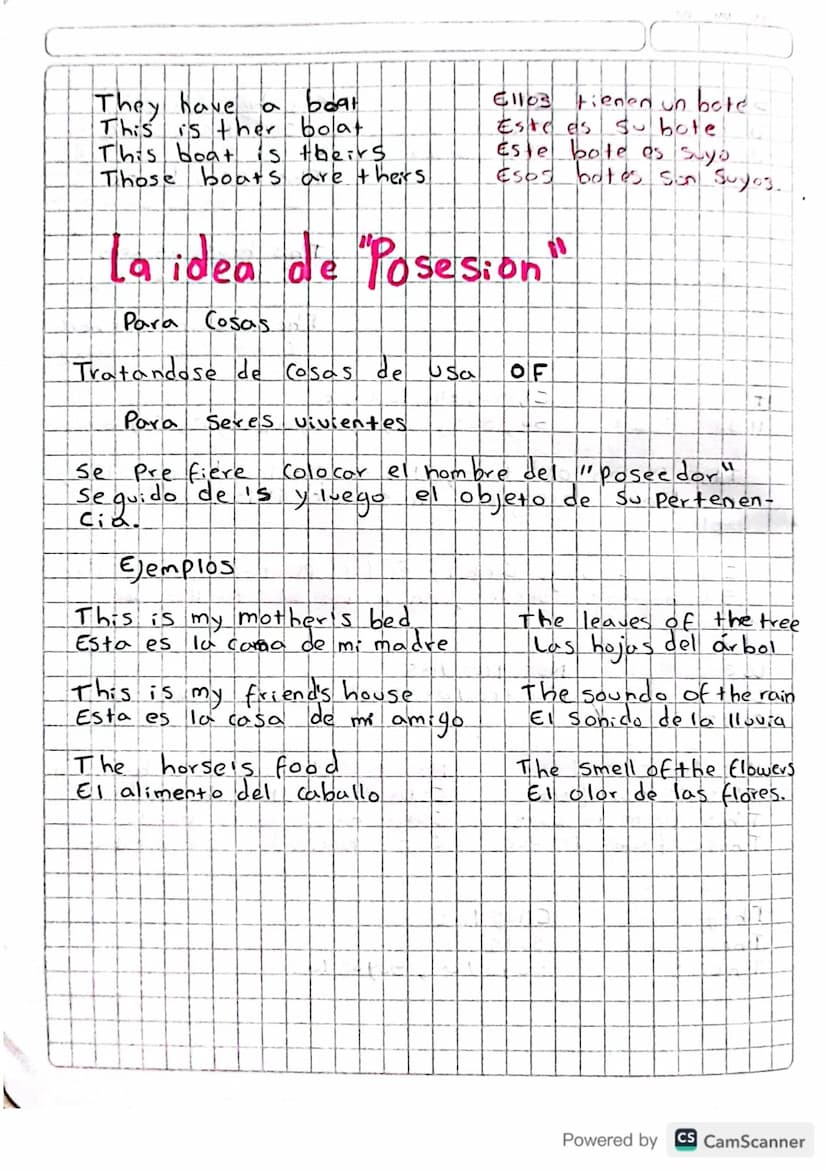 They have a boat Ellos tienen un bote
This is ther boat Este es su bote
This boat is theirs Este bote es suyo
Those boats are theirs Esos botes son suyos.
La idea de "Posesion"
Para Cosas
Tratandose de cosas de usa OF
Para seres vivientes
Se prefiere colocar el nombre del "poseedor"
seguido de 's y luego el objeto de su pertenen-
cia.
Ejemplos
This is my mother's bed The leaves of the tree
Esta es la cama de mi madre Las hojas del árbol
This is my friend's house The soundo of the rain
Esta es la casa de mi amigo El sonido de la lluvia
The horse's food The smell of the flowers
El alimento del caballo El olor de las flores.
Powered by CS CamScanner